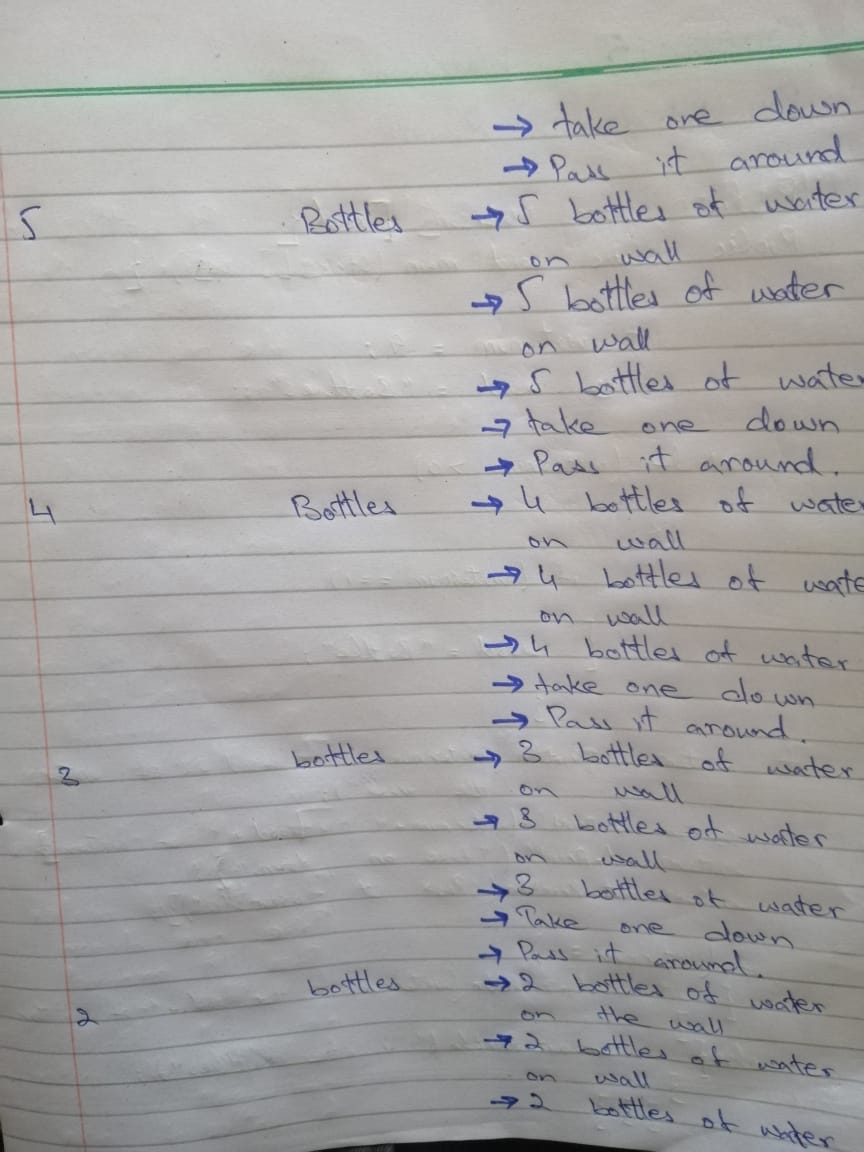 → take one down
→ Pass it around
5 Bottles → 5 bottles of water
on wall
→ 5 bottles of water
on wall
→ 5 bottles of water
→ take one down
→ Pass it around.
4 Bottles → 4 bottles of water
on wall
→ 4 bottles of wate
on wall
→ 4 bottles of water
→ take one down
→ Pass it around.
3 bottles → 3 bottles of water
on wall
→ 3 bottles of water
on wall
→ 3 bottles of water
→ Take one down
→ Pass it around.
2 bottles → 2 bottles of water
on the wall
→ 2 bottles of water
on wall
→ 2 bottles of water